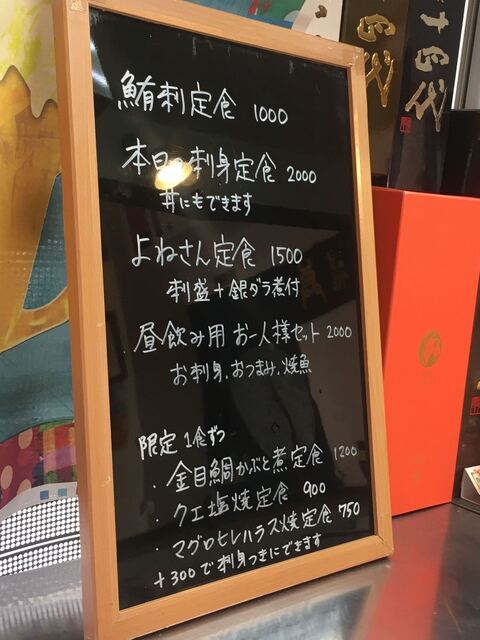 鮪刺定食 1000
本日の刺身定食 2000
丼にもできます
よねさん定食 1500
刺盛+銀ダラ煮付
昼飲み用 お一人様セット 2000
お刺身.おつまみ.焼魚
限定 1食ずつ
・金目鯛かぶと煮定食 1200
・クエ塩焼定食 900
・マグロヒレハラス焼定食 750
+300で刺身つきにできます
十四代
十四代